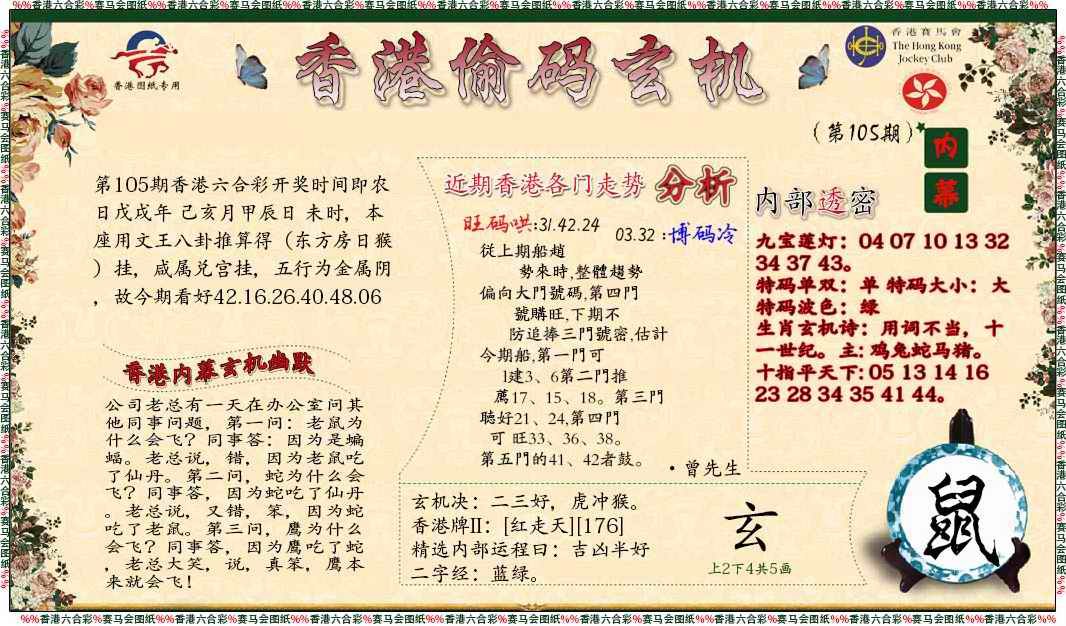 %%香港六合彩%赛马会图纸%%香港六合彩%赛马会图纸%%香港六合彩%赛马会图纸%%香港六合彩%赛马会图纸%%香港六合彩%赛马会图纸%%香港六合彩%赛马会图纸%%香港六合彩%%
香港图纸专用
香港偷码玄机
香港賽馬會
The Hong Kong
Jockey Club
(第105期)
内
幕
第105期香港六合彩开奖时间即农
日戊戌年 己亥月甲辰日 未时，本
座用文王八卦推算得（东方房日猴
）挂，咸属兑宫挂，五行为金属阴
，故今期看好42.16.26.40.48.06
香港内幕玄机幽默
公司老总有一天在办公室问其
他同事问题，第一问：老鼠为
什么会飞？同事答：因为是蝙
蝠。老总说，错，因为老鼠吃
了仙丹。第二问，蛇为什么会
飞？同事答，因为蛇吃了仙丹
。老总说，又错，笨，因为蛇
吃了老鼠。第三问，鹰为什么
会飞？同事答，因为鹰吃了蛇
，老总大笑，说，真笨，鹰本
来就会飞！
近期香港各门走势 分析
旺码哄:31.42.24
03.32 :博码冷
從上期船趙
勢來時,整體趨勢
偏向大門號碼,第四門
號購旺,下期不
防追捧三門號密,估計
今期船,第一門可
1建3、6第二門推
薦17、15、18。第三門
聽好21、24,第四門
可 旺33、36、38。
第五門的41、42者鼓。
·曾先生
玄机决：二三好，虎冲猴。
香港牌II：[红走天][176]
精选内部运程曰：吉凶半好
二字经：蓝绿。
玄
上2下4共5画
内部透密
九宝莲灯：04 07 10 13 32
34 37 43。
特码单双：单 特码大小：大
特码波色：绿
生肖玄机诗：用词不当，十
一世纪。主：鸡兔蛇马猪。
十指平天下：05 13 14 16
23 28 34 35 41 44。
鼠
%%香港六合彩%赛马会图纸%%香港六合彩%赛马会图纸%%香港六合彩%赛马会图纸%%香港六合彩%赛马会图纸%%香港六合彩%赛马会图纸%%香港六合彩%赛马会图纸%%香港六合彩%%